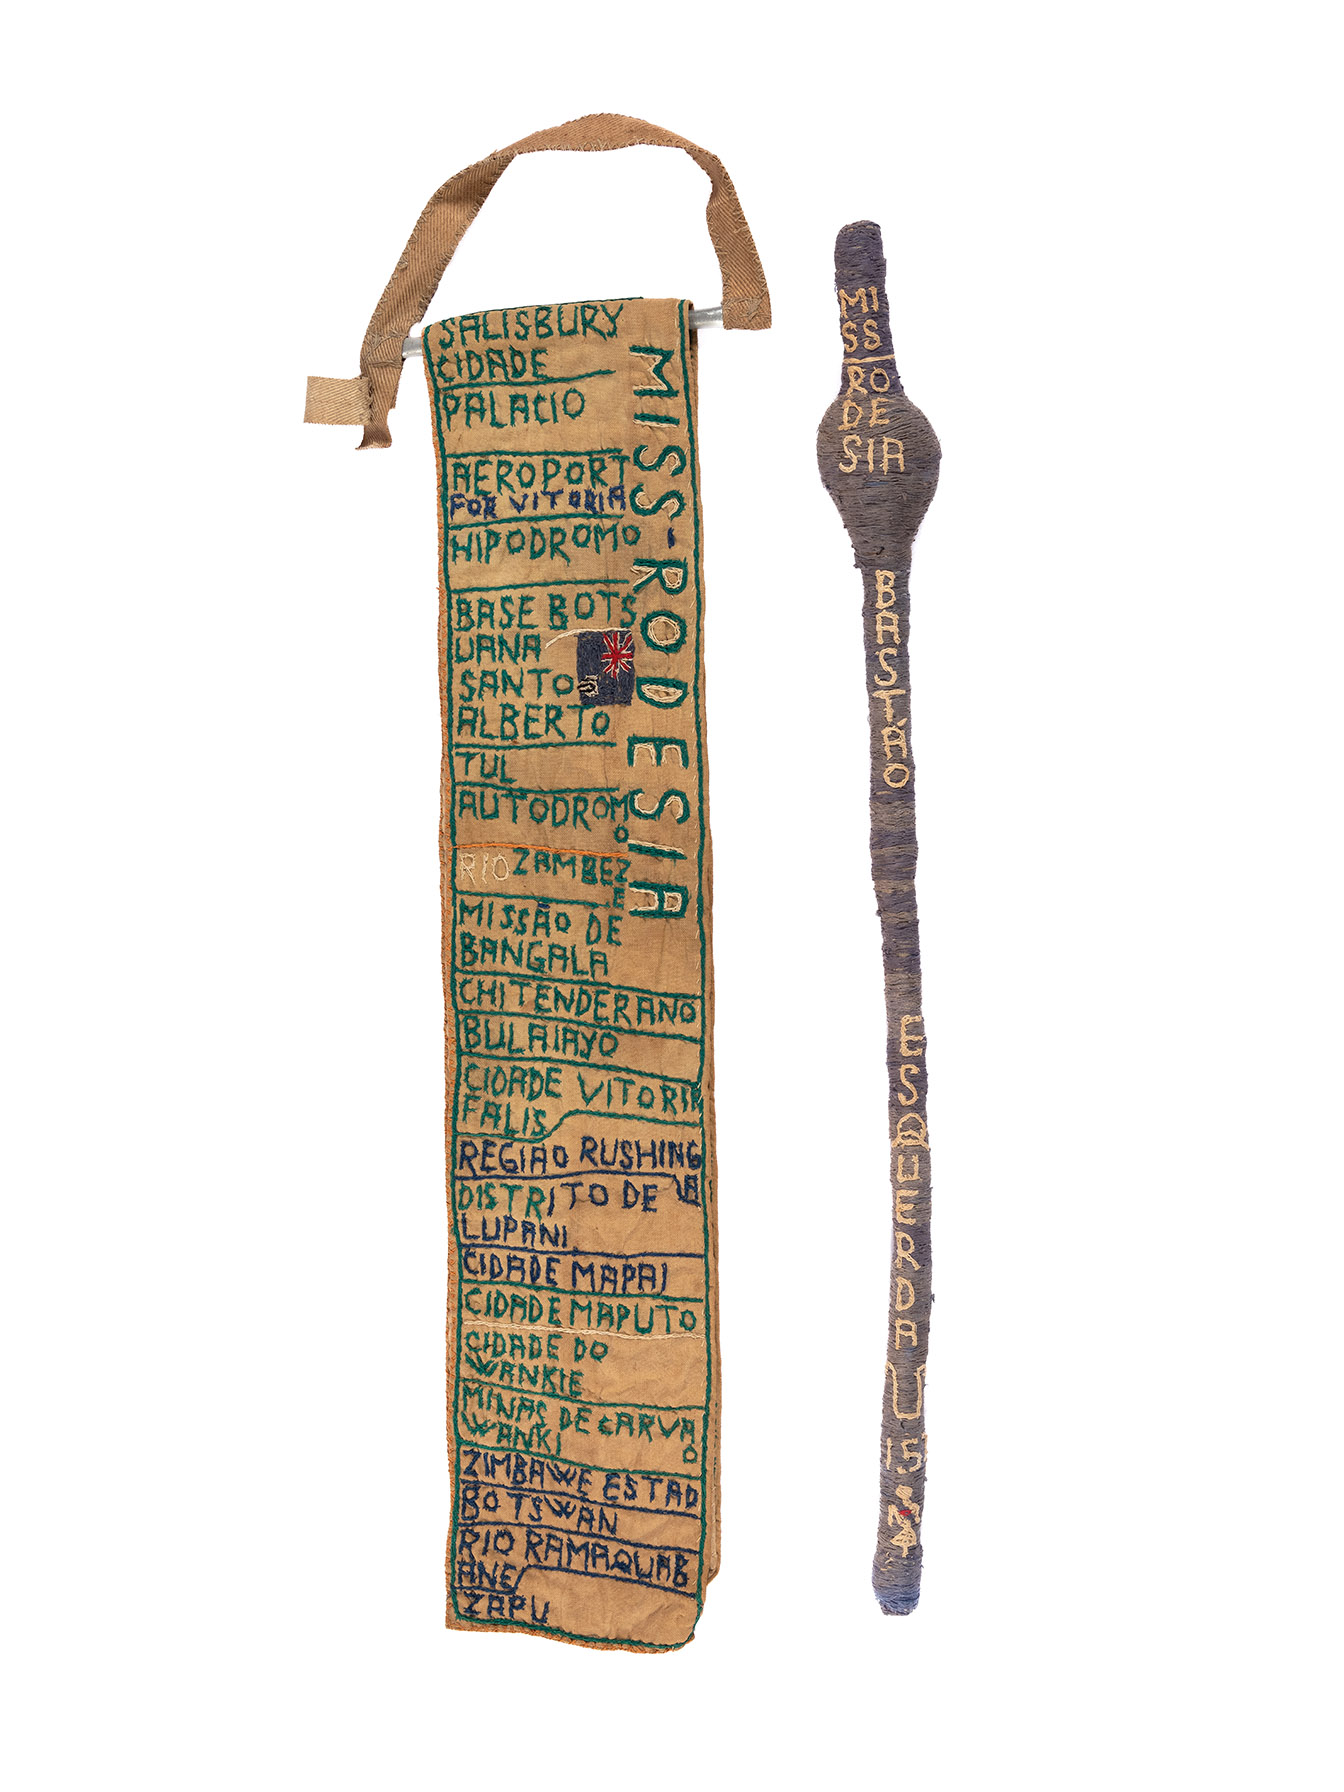 SALISBURY
CIDADE
PALACIO
AEROPORT
FOR VITORIA
HIPODROMO
BASE BOTS
UANA
SANTO
ALBERTO
TUL
AUTODROM
O
RIO ZAMBEZ
E
MISSÃO DE
BANGALA
CHITENDERANO
BULAIAYO
CIDADE VITORIA
FALIS
REGIAO RUSHING
A
DISTRITO DE
LUPANI
CIDADE MAPAI
CIDADE MAPUTO
CIDADE DO
WANKIE
MINAS DE CARVA
O
WANKI
ZIMBAWE ESTAD
BOTSWAN
RIO RAMAQUAB
ANE
ZAPU
MISS-RODESIA
MI
SS
RO
DE
SIA
BASTÃO
ESQUERDA
U
15